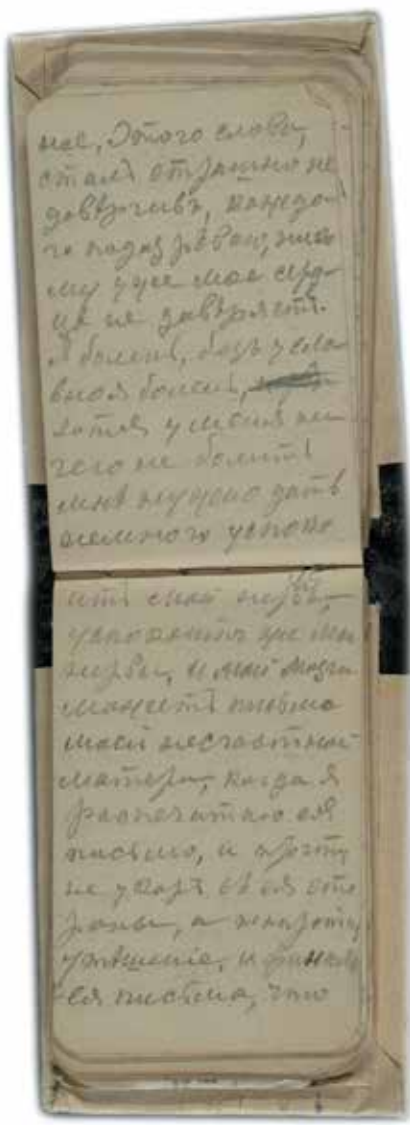 нее, Этого слова,
сталъ страшно не
довѣрчивъ, каждо
го подозрѣваю, нико
му уже мое серд
це не довѣряетъ.
Я боленъ, безусло
вно я боленъ,
хотя у меня ни
чего не болитъ
мнѣ нужно дать
немного успоко
ить свои нервы,
успокоить же мои
нервы, и мой мозгъ
можетъ письмо
моей несчастной
матери, когда я
распечатаю ея
письмо, и прочту
не укоръ съ ея сто
роны, а напротивъ
утѣшеніе, и
ея письма, что